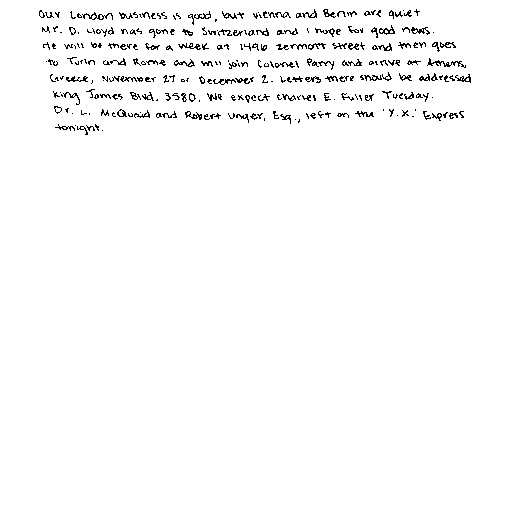 Our London business is good, but Vienna and Berlin are quiet
Mr. D. Lloyd has gone to Switzerland and I hope for good news.
He will be there for a week at 1496 Zermott Street and then goes
to Turin and Rome and will join Colonel Parry and arrive at Athens,
Greece, November 27 or December 2. Letters there should be addressed
King James Blvd. 3580. We expect Charles E. Fuller Tuesday.
Dr. L. McQuaid and Robert Unger, Esq., left on the 'Y.X.' Express
tonight.